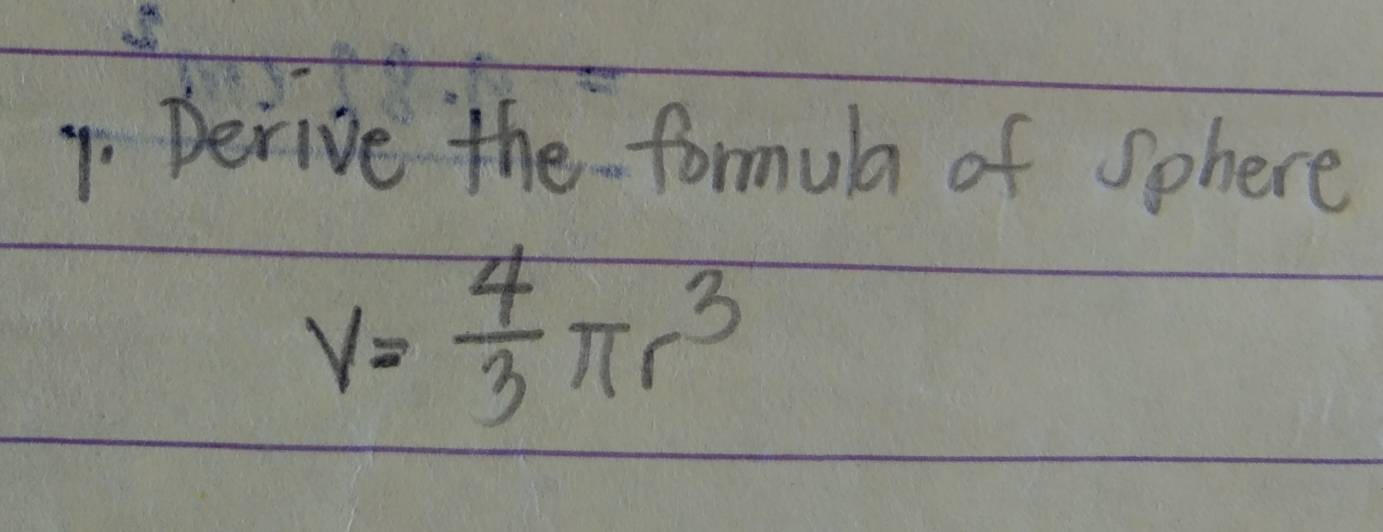 7. Derive the formula of sphere
V = 4/3 πr³